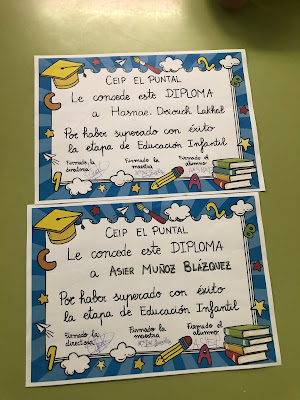 CEIP EL PUNTAL
Le concede este DIPLOMA
a Hasnae. Derouch Lakhal
Por haber superado con éxito
la etapa de Educación Infantil
Firmado la Firmado la Firmado el
directora maestra alumno
1
A
CEIP EL PUNTAL
Le concede este DIPLOMA
a ASIER MUÑOZ BLÁZQUEZ
Por haber superado con éxito
la etapa de Educación Infantil
Firmado la Firmado la Firmado el
directora maestra alumno
1
A